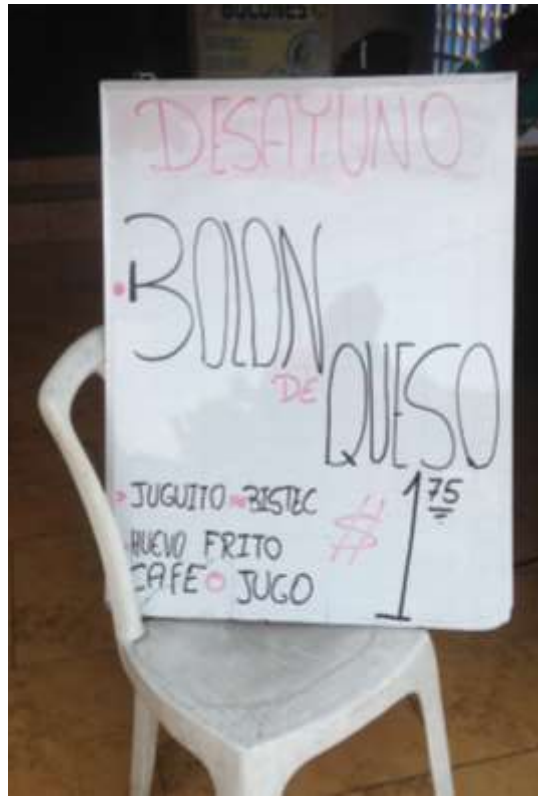 BOLONES
DESAYUNO
BOLON
DE
QUESO
JUGUITO BISTEC
HUEVO FRITO
CAFE O JUGO
$1 75